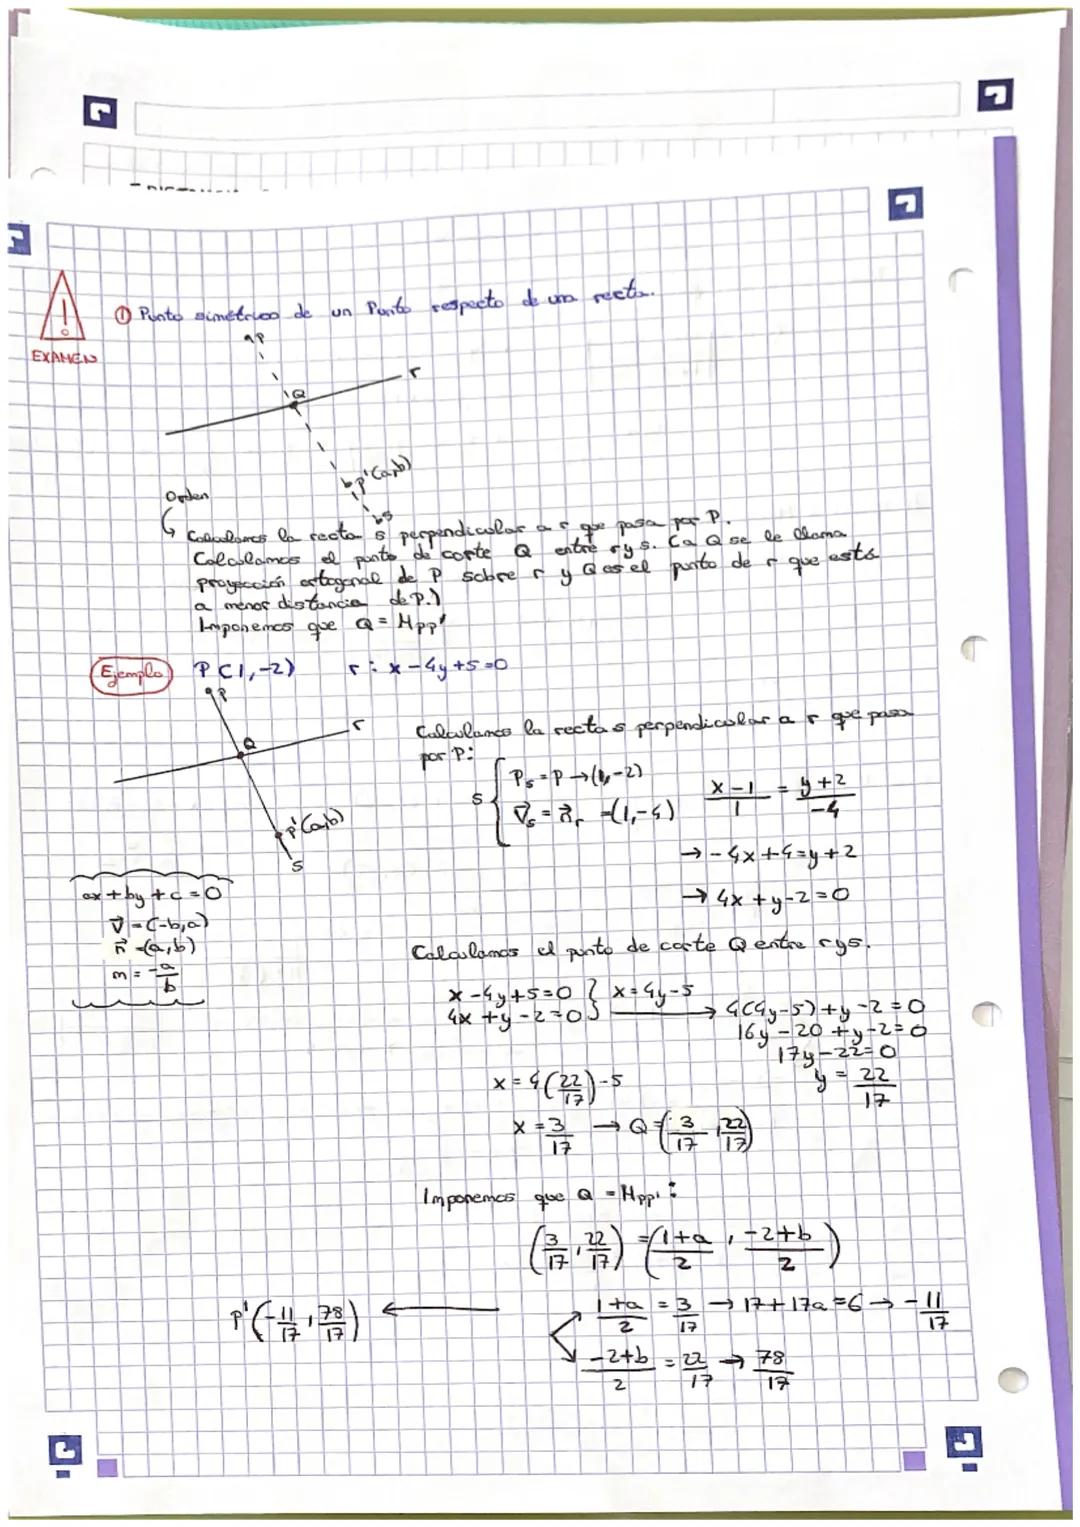 EXAMEN
① Punto simétrico de un Punto respecto de una recta.
P
r
Q
P'(a,b)
s
Orden
↳ Calculamos la recta s perpendicular a r que pasa por P.
Calculamos el punto de corte Q entre r y s. (a Q se le llama
proyección ortogonal de P sobre r y Q es el punto de r que está
a menor distancia de P.)
Imponemos que Q = Mpp'
Ejemplo P(1,-2) r: x-4y+5=0
P
r
Q
P'(a,b)
s
Calculamos la recta s perpendicular a r que pasa
por P:
s { Ps = P → (1,-2)
v⃗s = n⃗r = (1,-4)
(x-1)/1 = (y+2)/-4
→ -4x+4=y+2
→ 4x+y-2=0
ax+by+c=0
v⃗=(-b,a)
n⃗=(a,b)
m = -a/b
Calculamos el punto de corte Q entre r y s.
x-4y+5=0 } x=4y-5
4x+y-2=0 } → 4(4y-5)+y-2=0
16y-20+y-2=0
17y-22=0
y = 22/17
x = 4(22/17)-5
x = 3/17 → Q = (3/17, 22/17)
Imponemos que Q = Mpp':
(3/17, 22/17) = ((1+a)/2, (-2+b)/2)
(1+a)/2 = 3/17 → 17+17a=6 → -11/17
P'(-11/17, 78/17) ←
(-2+b)/2 = 22/17 → 78/17